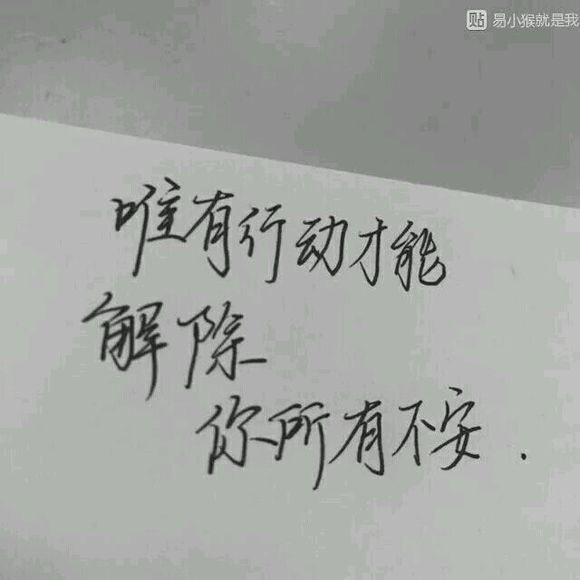 贴 易小猴就是我
唯有行动才能
解除
你所有不安.